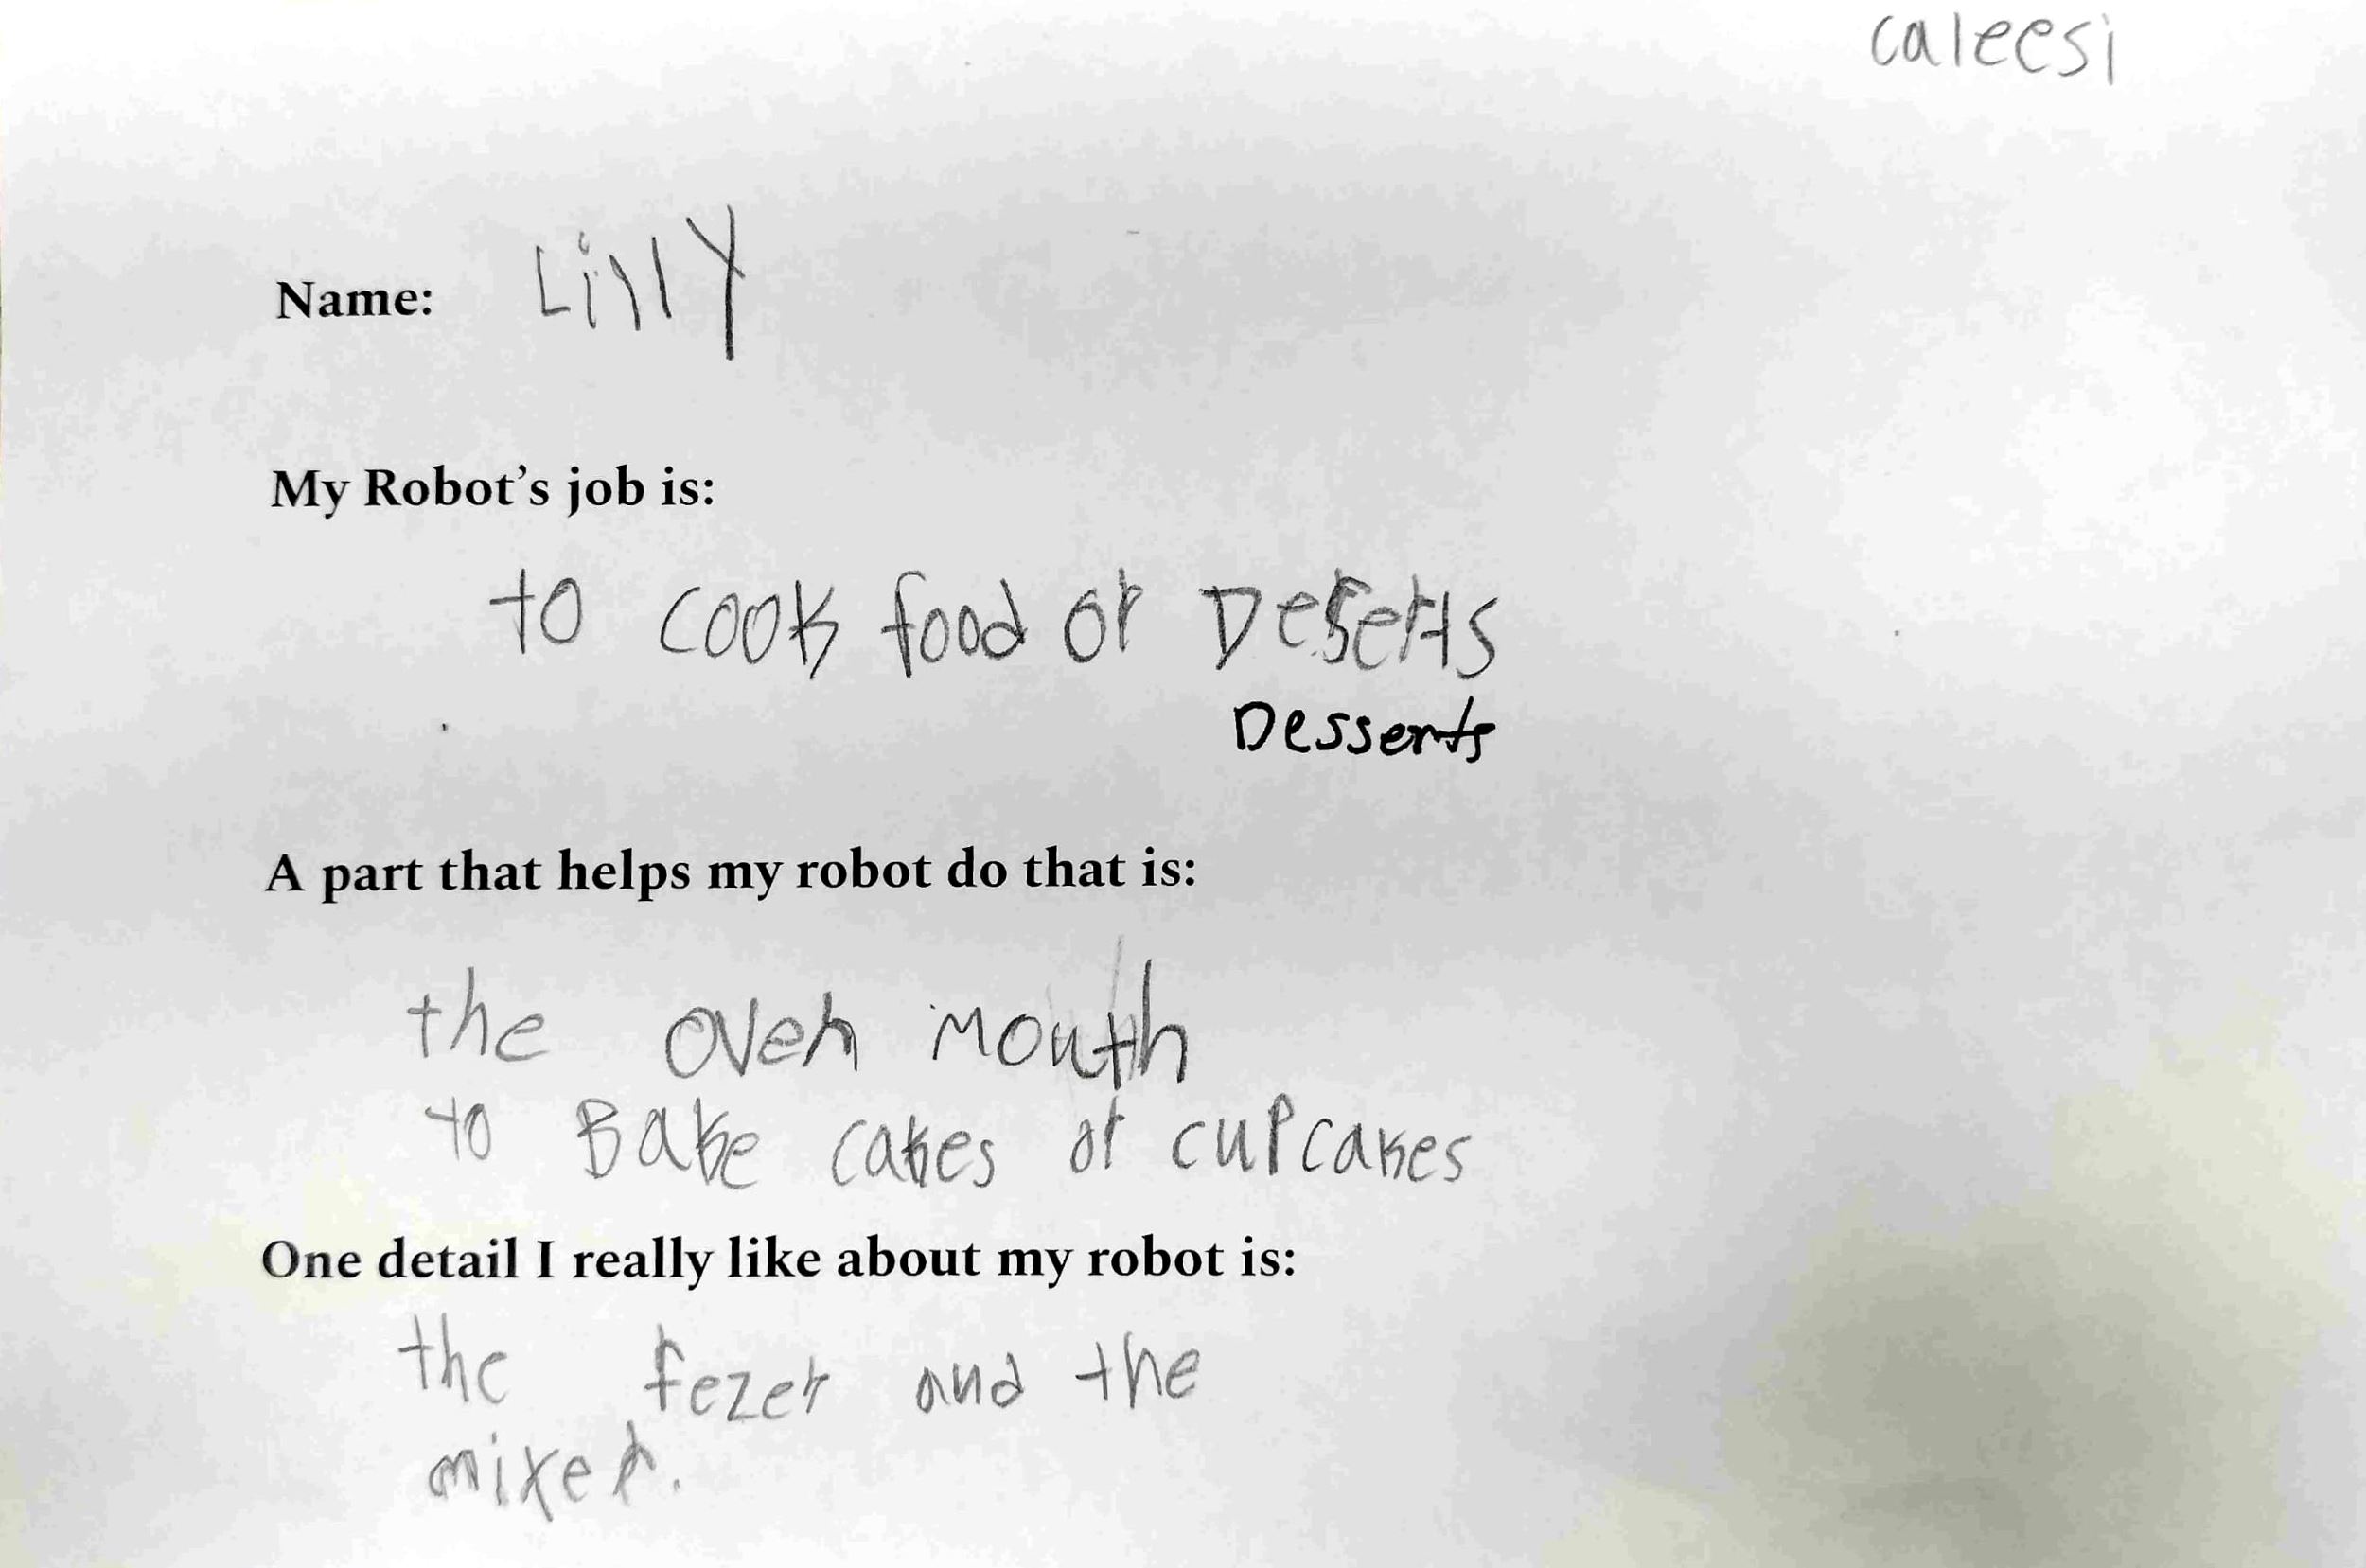 caleesi
Name: Lilly
My Robot's job is:
to cook food or Deserts
Desserts
A part that helps my robot do that is:
the oven mouth
to Bake cakes or cupcakes
One detail I really like about my robot is:
the fezer and the
mixer.